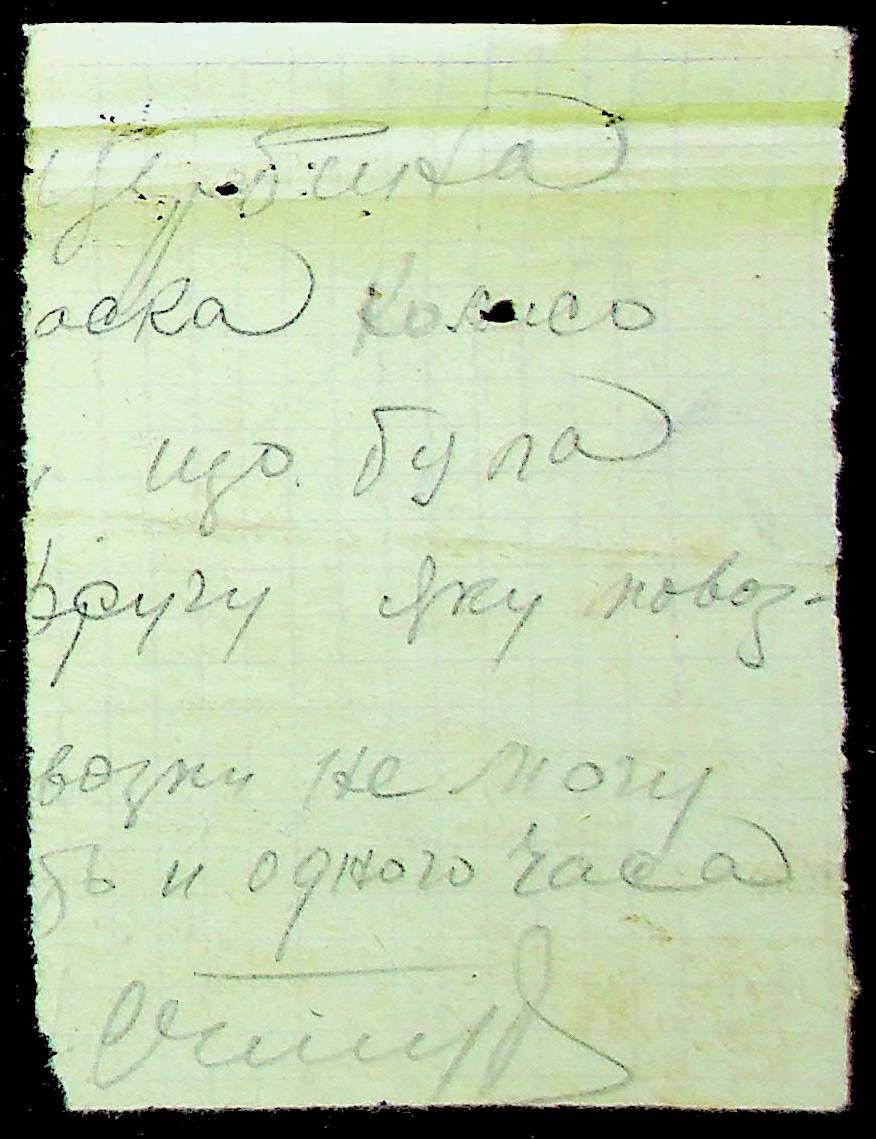 Щербина
аска колисо
що була
фручу яку повоз-
возки не можу
ть и одного часа